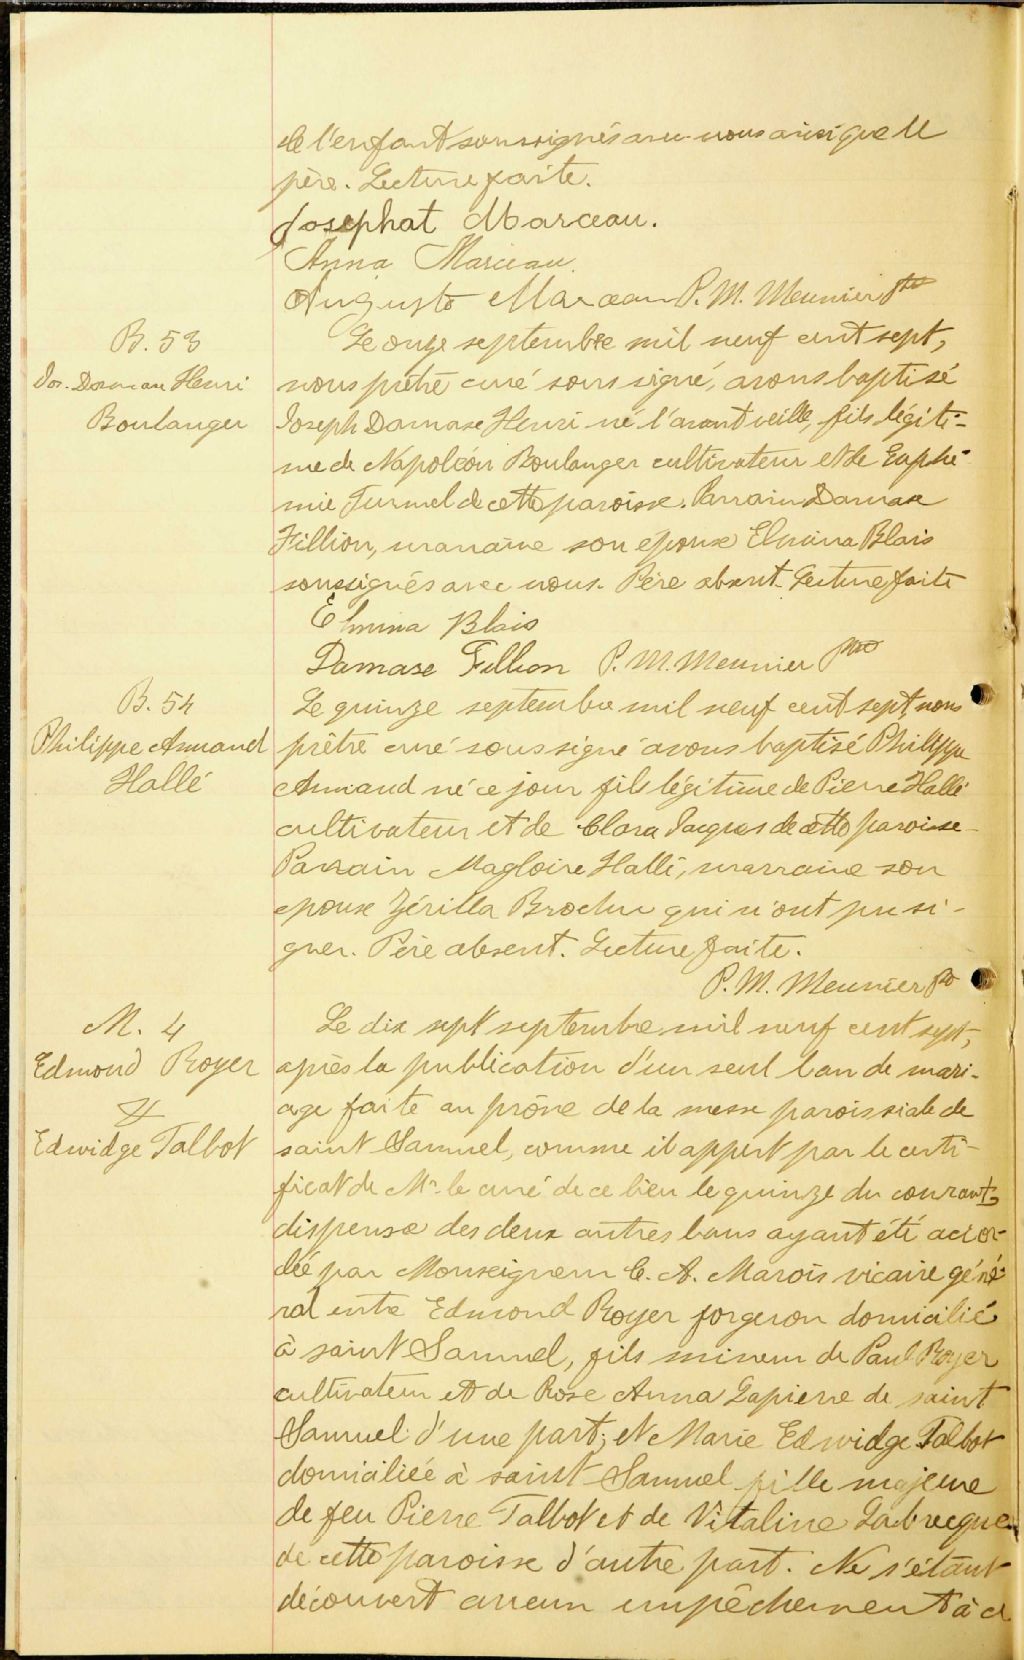 de l'enfant soussignés avec nous ainsi que le
père. Lecture faite.
Josephat Marceau.
Anna Marceau
Auguste Marceau P. M. Meunier Ptre
B. 53
Jos. Damase Henri
Boulanger
Le onze septembre mil neuf cent sept,
nous prêtre curé soussigné, avons baptisé
Joseph Damase Henri né l'avant veille, fils légiti-
me de Napoléon Boulanger cultivateur et de Euphé-
mie Turmel de cette paroisse. Parrain Damase
Fillion, marraine son epouse Elmina Blais
soussignés avec nous. Père absent. Lecture faite
Elmina Blais
Damase Fillion P. M. Meunier Ptre
B. 54
Philippe Armand
Hallé
Le quinze septembre mil neuf cent sept, nous
prêtre curé soussigné avons baptisé Philippe
Armand né ce jour fils légitime de Pierre Hallé
cultivateur et de Clara Jacques de cette paroisse
Parrain Magloire Hallé, marraine son
epouse Zérilla Brochu qui n'ont pu si-
gner. Père absent. Lecture faite.
P. M. Meunier Ptre
M. 4
Edmond Royer
&
Edwidge Talbot
Le dix sept septembre mil neuf cent sept,
après la publication d'un seul ban de mari-
age faite au prône de la messe paroissiale de
saint Samuel, comme il appert par le certi-
ficat de Mr. le curé de ce lieu le quinze du courant,
dispense des deux autres bans ayant été accor-
dée par Monseigneur C. A. Marois vicaire géné-
ral entre Edmond Royer forgeron domicilié
à saint Samuel, fils mineur de Paul Royer
cultivateur et de Rose Anna Lapierre de saint
Samuel d'une part; et Marie Edwidge Talbot
domiciliée à saint Samuel fille majeure
de feu Pierre Talbot et de Vitaline Labrecque
de cette paroisse d'autre part. Ne s'étant
découvert aucun empêchement à ce